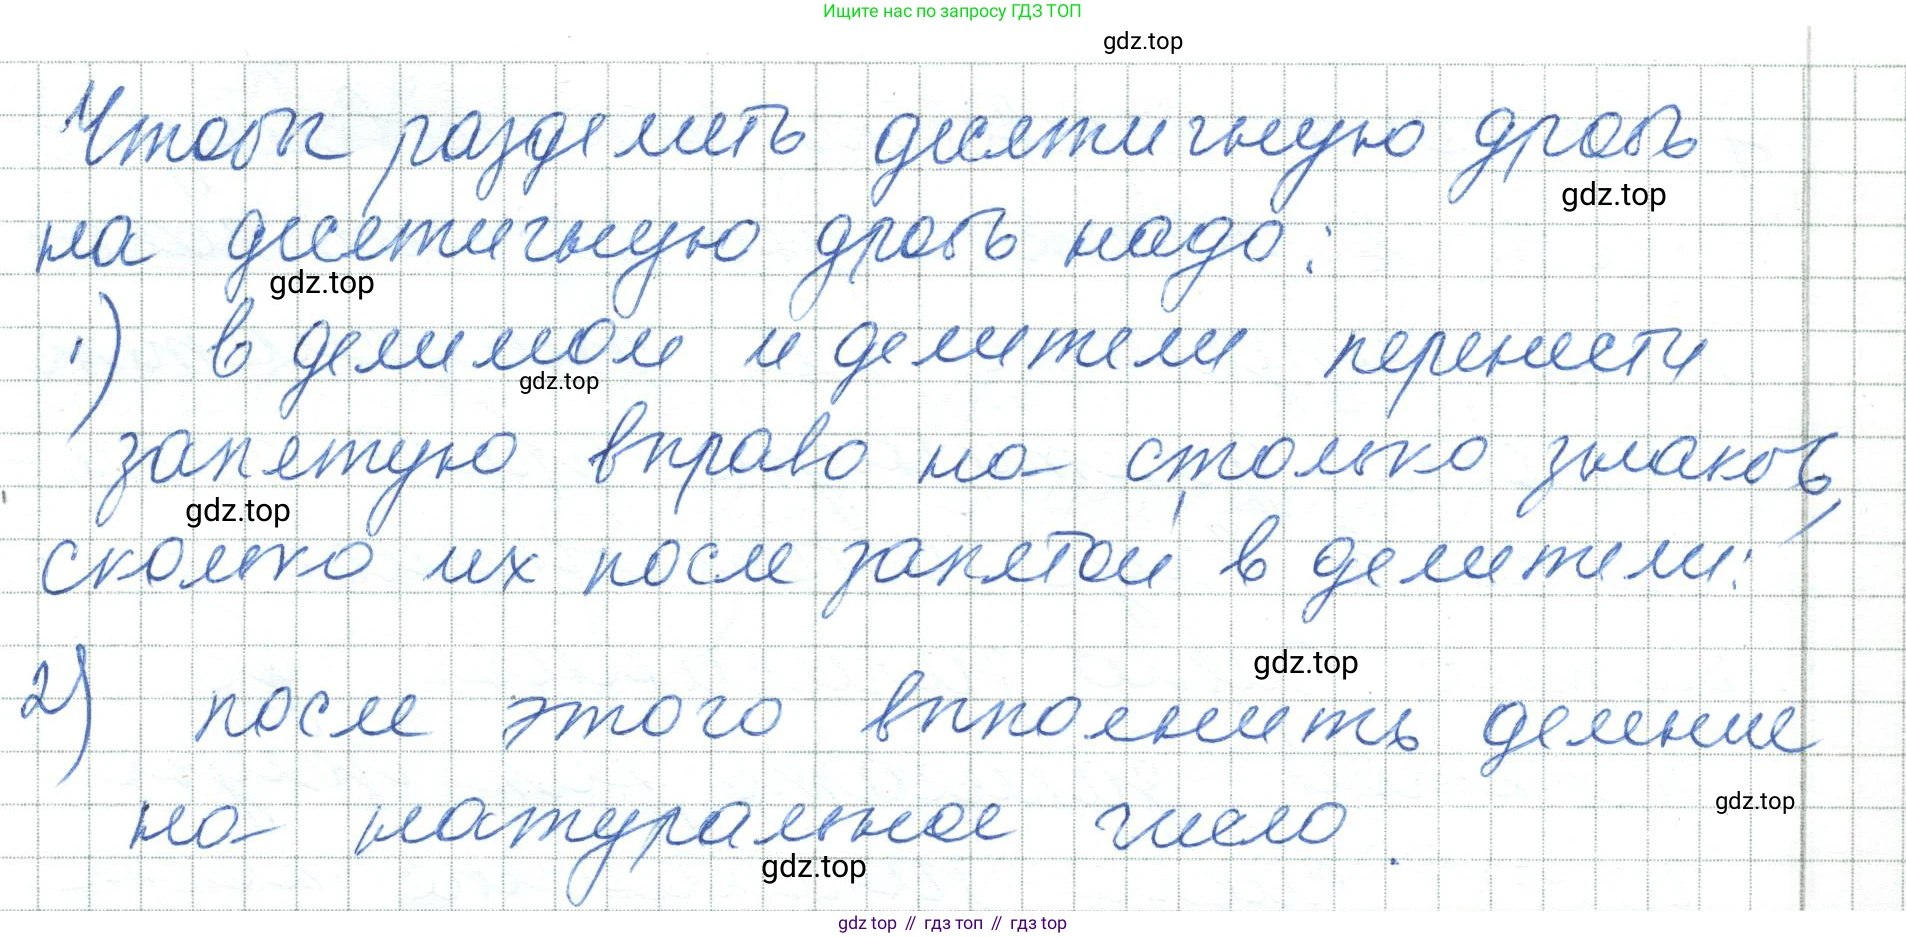 Ищите нас по запросу ГДЗ ТОП
gdz.top
Чтобы разделить десятичную дробь
gdz.top
на десятичную дробь надо:
gdz.top
1) в делимом и делители перенести
gdz.top
запятую вправо на столько знаков,
gdz.top
сколько их после запятой в делители:
gdz.top
2) после этого выполнить деление
gdz.top
на натуральное число.
gdz.top
gdz.top // гдз топ // гдз top